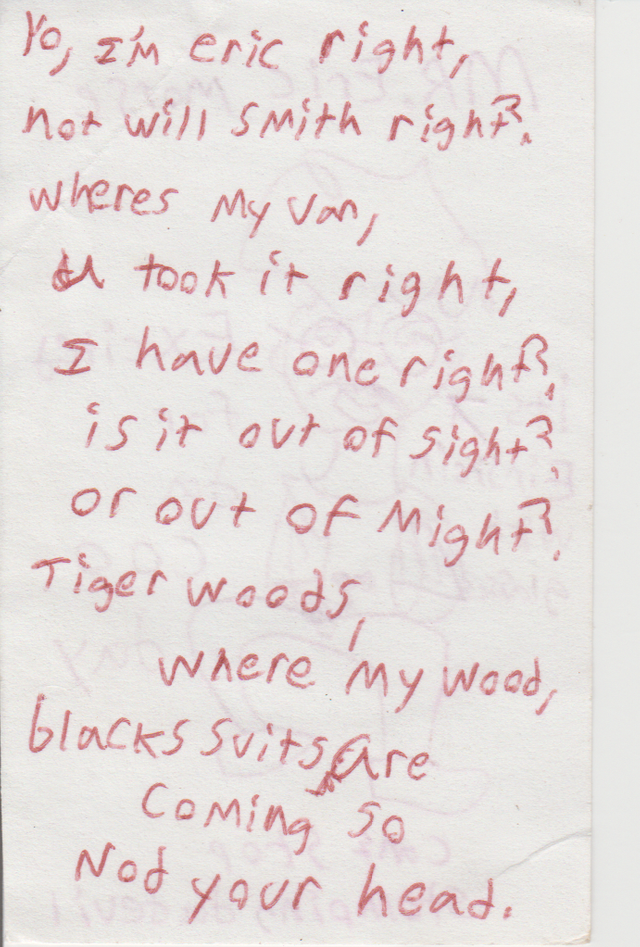 Yo, I'm eric right,
not will smith right?.
wheres my van,
U took it right,
I have one right?,
is it out of sight?,
or out of Might?.
Tiger woods,
where my wood,
blacks suits, are
coming so
Nod your head.